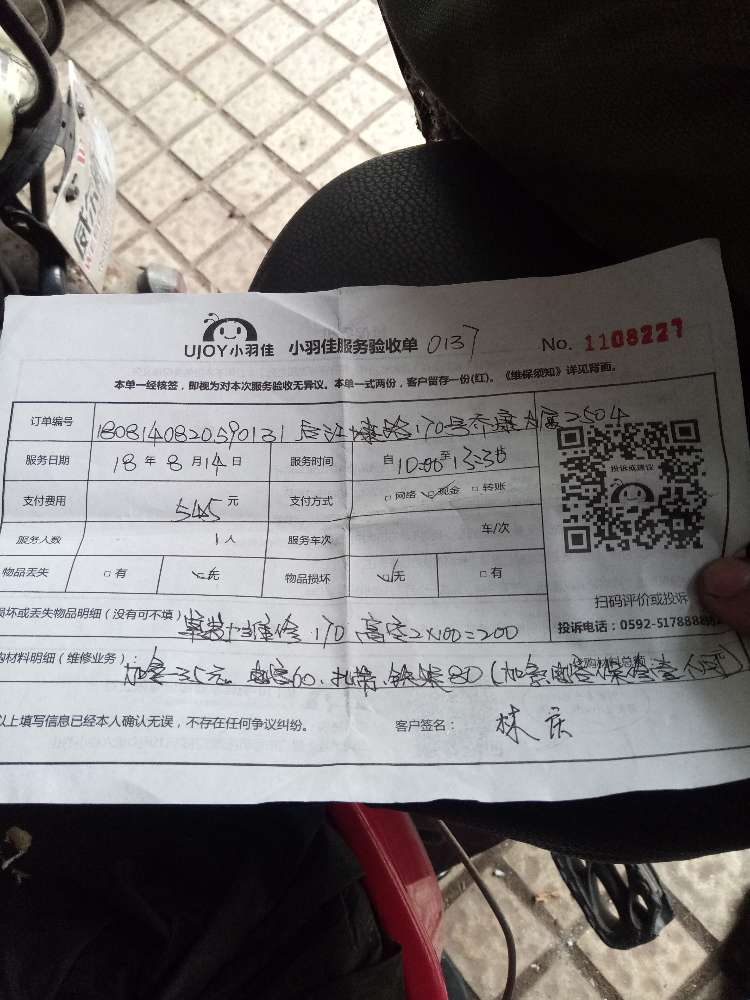 UJOY小羽佳 小羽佳服务验收单 0137 No. 1108227
本单一经核签，即视为对本次服务验收无异议。本单一式两份，客户留存一份(红)。《维保须知》详见背面。
订单编号 1808140820590131 170号 2504
服务日期 18 年 8 月 14 日 服务时间 自 10:00 至 13:30
投诉或建议
支付费用 545 元 支付方式 □网络 ☑现金 □转账
服务人数 1 人 服务车次 车/次
物品丢失 □有 ☑无 物品损坏 ☑无 □有
扫码评价或投诉
损坏或丢失物品明细（没有可不填） 维修 170 高空2×100=200
投诉电话：0592-5178888
购材料明细（维修业务）： 35元 60、扎带 80
以上填写信息已经本人确认无误，不存在任何争议纠纷。 客户签名： 林庆